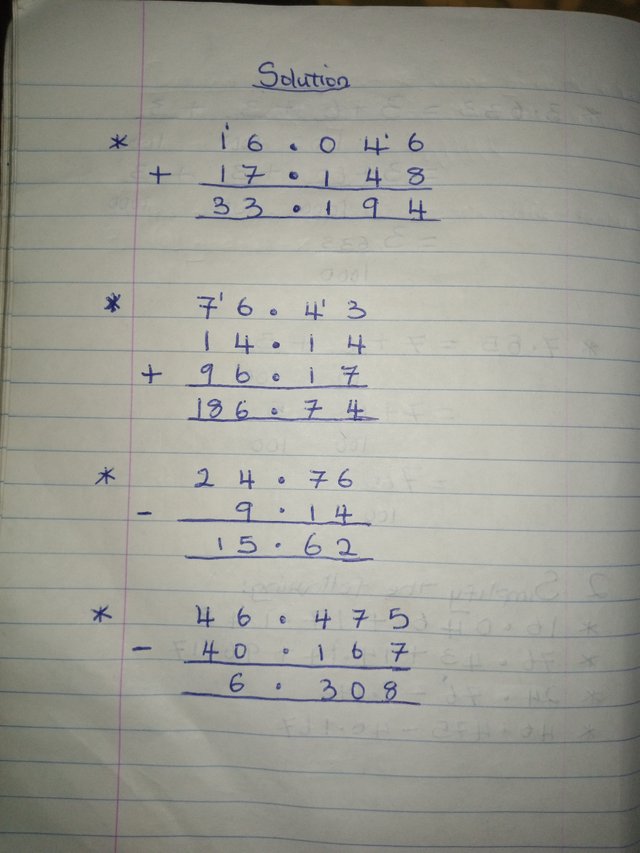 Solution
* 16.046
+ 17.148
33.194
* 76.43
14.14
+ 96.17
186.74
* 24.76
- 9.14
15.62
* 46.475
- 40.167
6.308